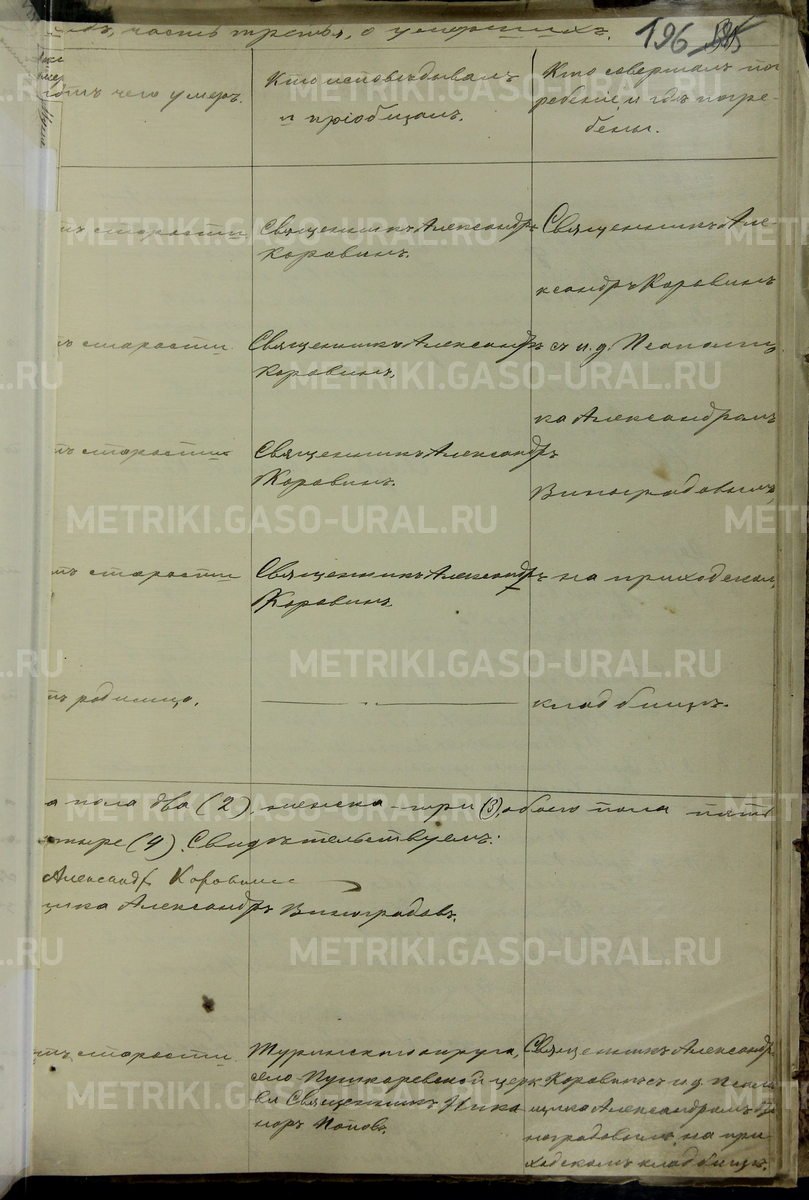 часть третья, о умершихъ.
196
отъ чего умеръ.
Кто исповѣдывалъ
и пріобщалъ.
Кто совершалъ по
гребеніе и гдѣ погре-
бены.
отъ старости
Священникъ Александръ
Коровинъ.
Священникъ Але-
ксандръ Коровинъ
тъ старости
Священникъ Александръ
Коровинъ.
съ и.д. Псаломщи
ка Александромъ
тъ старости
Священникъ Александръ
Коровинъ.
Виноградовымъ,
тъ старости
Священникъ Александръ
Коровинъ
на приходскомъ
тъ родимца.
кладбищѣ.
а пола два (2), женска три (3), обоего пола пять
етыре (4). Свидѣтельствуемъ:
Александръ Коровинъ
щика Александръ Виноградовъ.
тъ старости
Туринскаго округа,
село Пушкаревской церк
ви Священникъ Ника
норъ Поповъ.
Священникъ Александръ
Коровинъ съ и.д. Псалом
щика Александромъ Ви
ноградовымъ на при
ходскомъ кладбищѣ.
METRIKI.GASO-URAL.RU